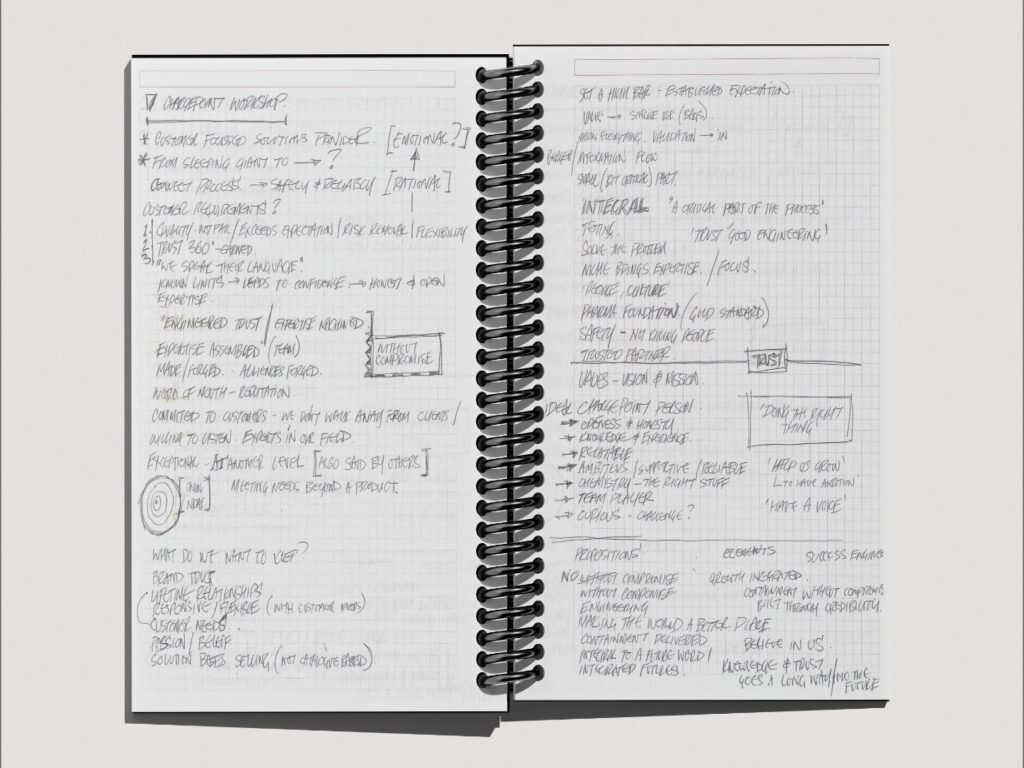 CHARGEPOINT WORKSHOP.
* CUSTOMER FOCUSED SOLUTIONS PROVIDER. [EMOTIONAL?]
* FROM SLEEPING GIANT TO → ?
CONNECT PROCESS → SAFELY & RELIABLY. [RATIONAL]
CUSTOMER REQUIREMENTS?
1) QUALITY - / EXCEEDS EXPECTATION / RISK REMOVAL / FLEXIBILITY
2) TRUST 360° - EARNED.
3) "WE SPEAK THEIR LANGUAGE".
KNOWN LIMITS → LEADS TO CONFIDENCE → HONEST & OPEN
EXPERTISE.
'ENGINEERED TRUST / EXPERTISE MACHINED
EXPERTISE ASSEMBLED / (TEAM)
MADE/FORGED. - ALLIANCES FORGED.
WITHOUT
COMPROMISE
WORD OF MOUTH - REPUTATION.
COMMITTED TO CUSTOMERS - WE DON'T WALK AWAY FROM CLIENTS /
WILLING TO LISTEN. EXPERTS IN OUR FIELD.
EXCEPTIONAL - AT ANOTHER LEVEL [ALSO SAID BY OTHERS]
MEETING NEEDS BEYOND A PRODUCT.
WHAT DO WE WANT TO KEEP?
BRAND TRUST
LIFETIME RELATIONSHIPS
RESPONSIVE / FLEXIBLE (WITH CUSTOMER NEEDS)
CUSTOMER NEEDS.
PASSION / BELIEF
SOLUTION BASED SELLING (NOT CATALOGUE BASED)
SET A HIGH BAR - ESTABLISHED EXPECTATION.
VALUE → SINGLE USE (BAGS).
EVERYTHING. VALIDATION → IN
INFORMATION FLOW
SMALL / (BUT CRITICAL) PART.
INTEGRAL "A CRITICAL PART OF THE PROCESS'
TESTING. 'TRUST 'GOOD ENGINEERING'
SOLVE THE PROBLEM
NICHE BRINGS EXPERTISE. / FOCUS.
'PEOPLE, CULTURE'
PHARMA FOUNDATION / (GOLD STANDARD)
SAFETY - NOT KILLING PEOPLE.
TRUSTED PARTNER.
TRUST
VALUES - VISION & MISSION.
IDEAL CHARGEPOINT PERSON.
→ OPENESS & HONESTY
→ KNOWLEDGE & EXPERIENCE.
→ RELATABLE
→ AMBITIOUS / SUPPORTIVE / RELIABLE
→ CHEMISTRY - THE RIGHT STUFF
→ TEAM PLAYER
→ CURIOUS - CHALLENGE?
'DOING THE RIGHT
THING'
'HELP US GROW'
TO HAVE AMBITION'
'HAVE A VOICE'
PROPOSITIONS'
NO WITHOUT COMPROMISE
WITHOUT COMPROMISE
ENGINEERING
MAKING THE WORLD A BETTER PLACE
CONTAINMENT DELIVERED
INTEGRAL TO A FUTURE WORLD /
INTEGRATED FUTURES.
ELEMENTS
SUCCESS ENGINEE
GROWTH INTEGRATED.
CONTAINMENT WITHOUT COMPROMIS
BUILT THROUGH CREDIBILITY.
BELIEVE IN US'
KNOWLEDGE & TRUST
GOES A LONG WAY / INTO THE
FUTURE.